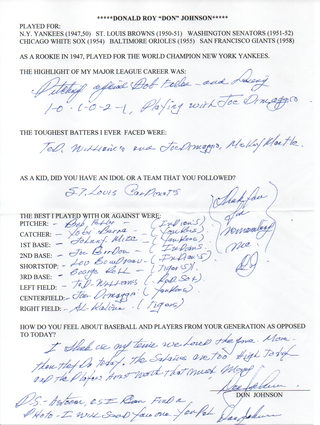 *****DONALD ROY "DON" JOHNSON*****
PLAYED FOR:
N.Y. YANKEES (1947,50) ST. LOUIS BROWNS (1950-51) WASHINGTON SENATORS (1951-52)
CHICAGO WHITE SOX (1954) BALTIMORE ORIOLES (1955) SAN FRANCISCO GIANTS (1958)
AS A ROOKIE IN 1947, PLAYED FOR THE WORLD CHAMPION NEW YORK YANKEES.
THE HIGHLIGHT OF MY MAJOR LEAGUE CAREER WAS:
Pitching against Bob Feller - and
1-0 Playing with Joe Dimaggio
THE TOUGHEST BATTERS I EVER FACED WERE:
Ted Williams and Joe Dimaggio, Mickey Mantle
AS A KID, DID YOU HAVE AN IDOL OR A TEAM THAT YOU FOLLOWED?
ST. Louis Cardinals
Thank you
for
remembering
me
D.J.
THE BEST I PLAYED WITH OR AGAINST WERE:
PITCHER: - Bob Feller - (Indians)
CATCHER: - Yogi Berra - (Yankees)
1ST BASE: - Johnny Mize - (Yankees)
2ND BASE: - Joe Gordon - (Indians)
SHORTSTOP: - Lou Boudreau - (Indians)
3RD BASE: - George Kell - (Tigers)
LEFT FIELD: - Ted Williams - (Red Sox)
CENTERFIELD: - Joe Dimaggio - (Yankees)
RIGHT FIELD: - Al Kaline - (Tigers)
HOW DO YOU FEEL ABOUT BASEBALL AND PLAYERS FROM YOUR GENERATION AS OPPOSED
TO TODAY?
I think in my time we loved the game More
than they Do today. The Salaries are too high Today
and the Players Arent worth that much Money
Don Johnson
DON JOHNSON
P.S. - if I Find a
Photo - I will Send you one. Your Pal Don Johnson